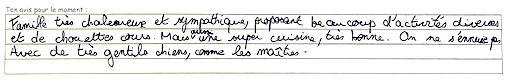 Ton avis pour le moment :
Famille très chaleureuse et sympathique, proposant beaucoup d'activités diverses
et de chouettes cours. Mais aussi une super cuisine, très bonne. On ne s'ennuie pas
Avec de très gentils chiens, comme les maîtres.